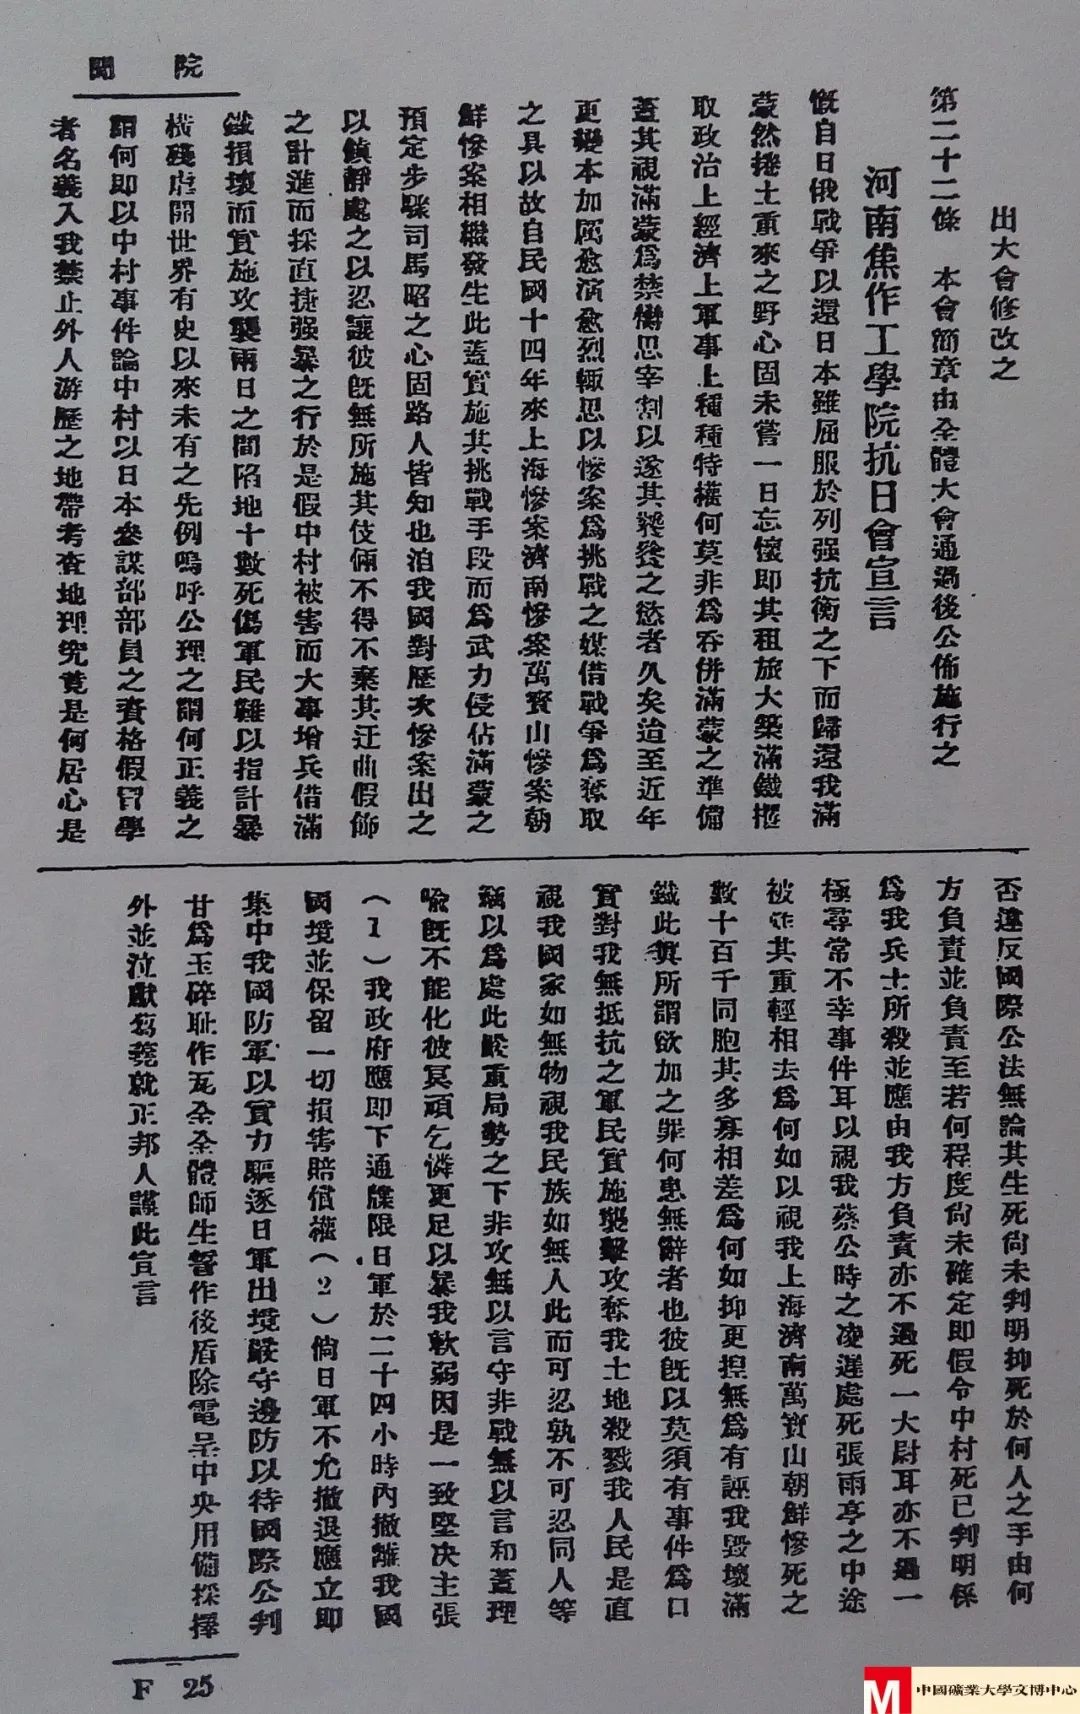 院聞
出大會修改之
第二十二條　本會簡章由全體大會通過後公佈施行之
河南焦作工學院抗日會宣言
慨自日俄戰爭以還日本雖屈服於列强抗衡之下而歸還我滿
蒙然捲土重來之野心固未嘗一日忘懷即其租旅大築滿鐵攫
取政治上經濟上軍事上種種特權何莫非爲吞併滿蒙之準備
蓋其視滿蒙爲禁臠思宰割以遂其饕餮之慾者久矣迨至近年
更變本加厲愈演愈烈輒思以慘案爲挑戰之媒借戰爭爲奪取
之具以故自民國十四年來上海慘案濟南慘案萬寳山慘案朝
鮮慘案相繼發生此蓋實施其挑戰手段而爲武力侵佔滿蒙之
預定步驟司馬昭之心固路人皆知也洎我國對歷次慘案出之
以鎮靜處之以忍讓彼旣無所施其伎倆不得不棄其迂曲假飾
之計進而採直捷强暴之行於是假中村被害而大事增兵借滿
鐵損壞而實施攻襲兩日之間陷地十數死傷軍民難以指計暴
橫殘虐開世界有史以來未有之先例嗚呼公理之謂何正義之
謂何即以中村事件論中村以日本參謀部部員之資格假冒學
者名義入我禁止外人游歷之地帶考查地理究竟是何居心是
否違反國際公法無論其生死尙未判明抑死於何人之手由何
方負責並負責至若何程度尙未確定即假令中村死已判明係
爲我兵士所殺並應由我方負責亦不過死一大尉耳亦不過一
極尋常不幸事件耳以視我蔡公時之凌遲處死張雨亭之中途
被炸其重輕相去爲何如以視我上海濟南萬寶山朝鮮慘死之
數十百千同胞其多寡相差爲何如抑更捏無爲有誣我毀壞滿
鐵此眞所謂欲加之罪何患無辭者也彼旣以莫須有事件爲口
實對我無抵抗之軍民實施襲擊攻奪我土地殺戮我人民是直
視我國家如無物視我民族如無人此而可忍孰不可忍同人等
竊以爲處此嚴重局勢之下非攻無以言守非戰無以言和蓋理
喻旣不能化彼冥頑乞憐更足以暴我軟弱因是一致堅决主張
（1）我政府應即下通牒限日軍於二十四小時內撤離我國
國境並保留一切損害賠償權（2）倘日軍不允撤退應立即
集中我國防軍以實力驅逐日軍出境嚴守邊防以待國際公判
甘爲玉碎恥作瓦全全體師生誓作後盾除電呈中央用備採擇
外並泣獻芻蕘就正邦人謹此宣言
F 25
M 中國礦業大學文博中心